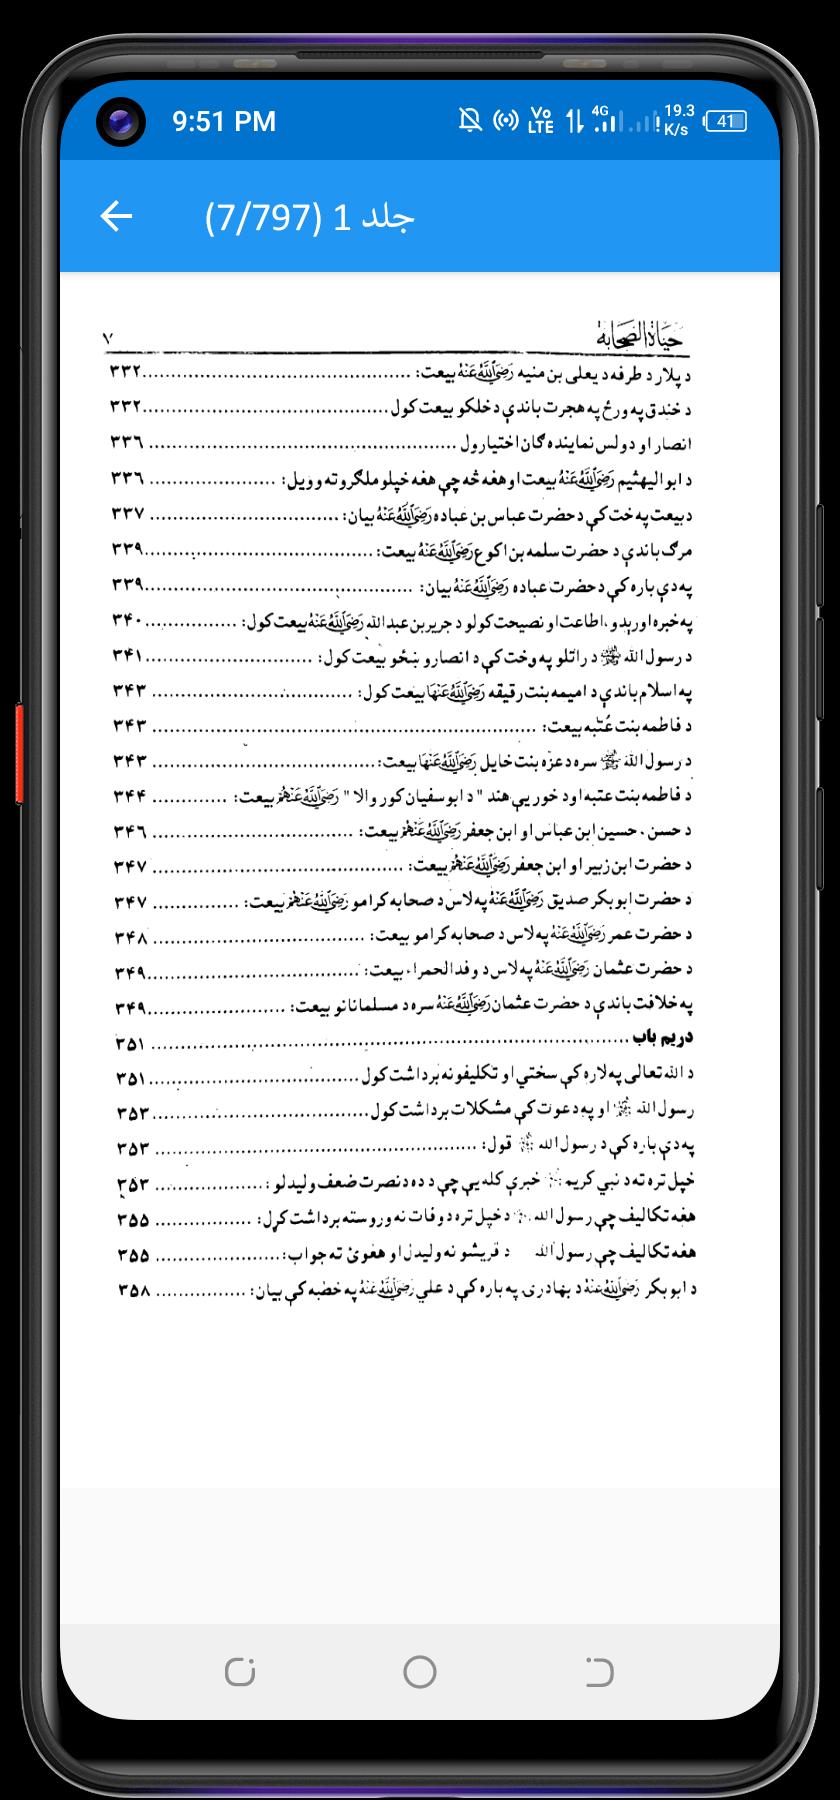 9:51 PM
Vo LTE 4G 19.3 K/s 41
جلد 1 (7/797)
حیاةالصحابة ٧
د پلار د طرفه د یعلی بن منیه رَضِیَاللهُعَنْهُ بیعت: ........ ۳۳۲
د خندق په ورځ په هجرت باندې د خلکو بیعت کول ........ ۳۳۲
انصار او دولس نماینده ګان اختیارول ........ ۳۳٦
د ابوالیهثیم رَضِیَاللهُعَنْهُ بیعت او هغه څه چې هغه خپلو ملګرو ته وویل: ........ ۳۳٦
د بیعت په خت کې د حضرت عباس بن عباده رَضِیَاللهُعَنْهُ بیان: ........ ۳۳۷
مرګ باندې د حضرت سلمه بن اکوع رَضِیَاللهُعَنْهُ بیعت: ........ ۳۳۹
په دې باره کې د حضرت عباده رَضِیَاللهُعَنْهُ بیان: ........ ۳۳۹
په خبره اورېدو، اطاعت او نصیحت کولو د جریر بن عبدالله رَضِیَاللهُعَنْهُ بیعت کول: ........ ۳۴۰
د رسول الله ﷺ د راتلو په وخت کې د انصارو ښځو بیعت کول: ........ ۳۴۱
په اسلام باندې د امیمه بنت رقیقه رَضِیَاللهُعَنْهَا بیعت کول: ........ ۳۴۳
د فاطمه بنت عُتبه بیعت: ........ ۳۴۳
د رسول الله ﷺ سره د عزه بنت خایل رَضِیَاللهُعَنْهَا بیعت: ........ ۳۴۳
د فاطمه بنت عتبه او د خور یې هند " د ابوسفیان کور والا " رَضِیَاللهُعَنْهُمْ بیعت: ........ ۳۴۴
د حسن، حسین ابن عباس او ابن جعفر رَضِیَاللهُعَنْهُمْ بیعت: ........ ۳۴٦
د حضرت ابن زبیر او ابن جعفر رَضِیَاللهُعَنْهُمْ بیعت: ........ ۳۴۷
د حضرت ابوبکر صدیق رَضِیَاللهُعَنْهُ په لاس د صحابه کرامو رَضِیَاللهُعَنْهُمْ بیعت: ........ ۳۴۷
د حضرت عمر رَضِیَاللهُعَنْهُ په لاس د صحابه کرامو بیعت: ........ ۳۴۸
د حضرت عثمان رَضِیَاللهُعَنْهُ په لاس د وفد الحمراء بیعت: ........ ۳۴۹
په خلافت باندې د حضرت عثمان رَضِیَاللهُعَنْهُ سره د مسلمانانو بیعت: ........ ۳۴۹
دریم باب ........ ۳۵۱
د الله تعالی په لاره کې سختي او تکلیفونه برداشت کول ........ ۳۵۱
رسول الله ﷺ او په دعوت کې مشکلات برداشت کول ........ ۳۵۳
په دې باره کې د رسول الله ﷺ قول: ........ ۳۵۳
خپل تره ته د نبي کریم ﷺ خبرې کله یې چې د ده د نصرت ضعف ولیدلو: ........ ۳۵۳
هغه تکالیف چې رسول الله ﷺ د خپل تره د وفات نه وروسته برداشت کړل: ........ ۳۵۵
هغه تکالیف چې رسول الله د قریشو نه ولیدل او هغوئ ته جواب: ........ ۳۵۵
د ابوبکر رَضِیَاللهُعَنْهُ د بهادرۍ په باره کې د علي رَضِیَاللهُعَنْهُ په خطبه کې بیان: ........ ۳۵۸